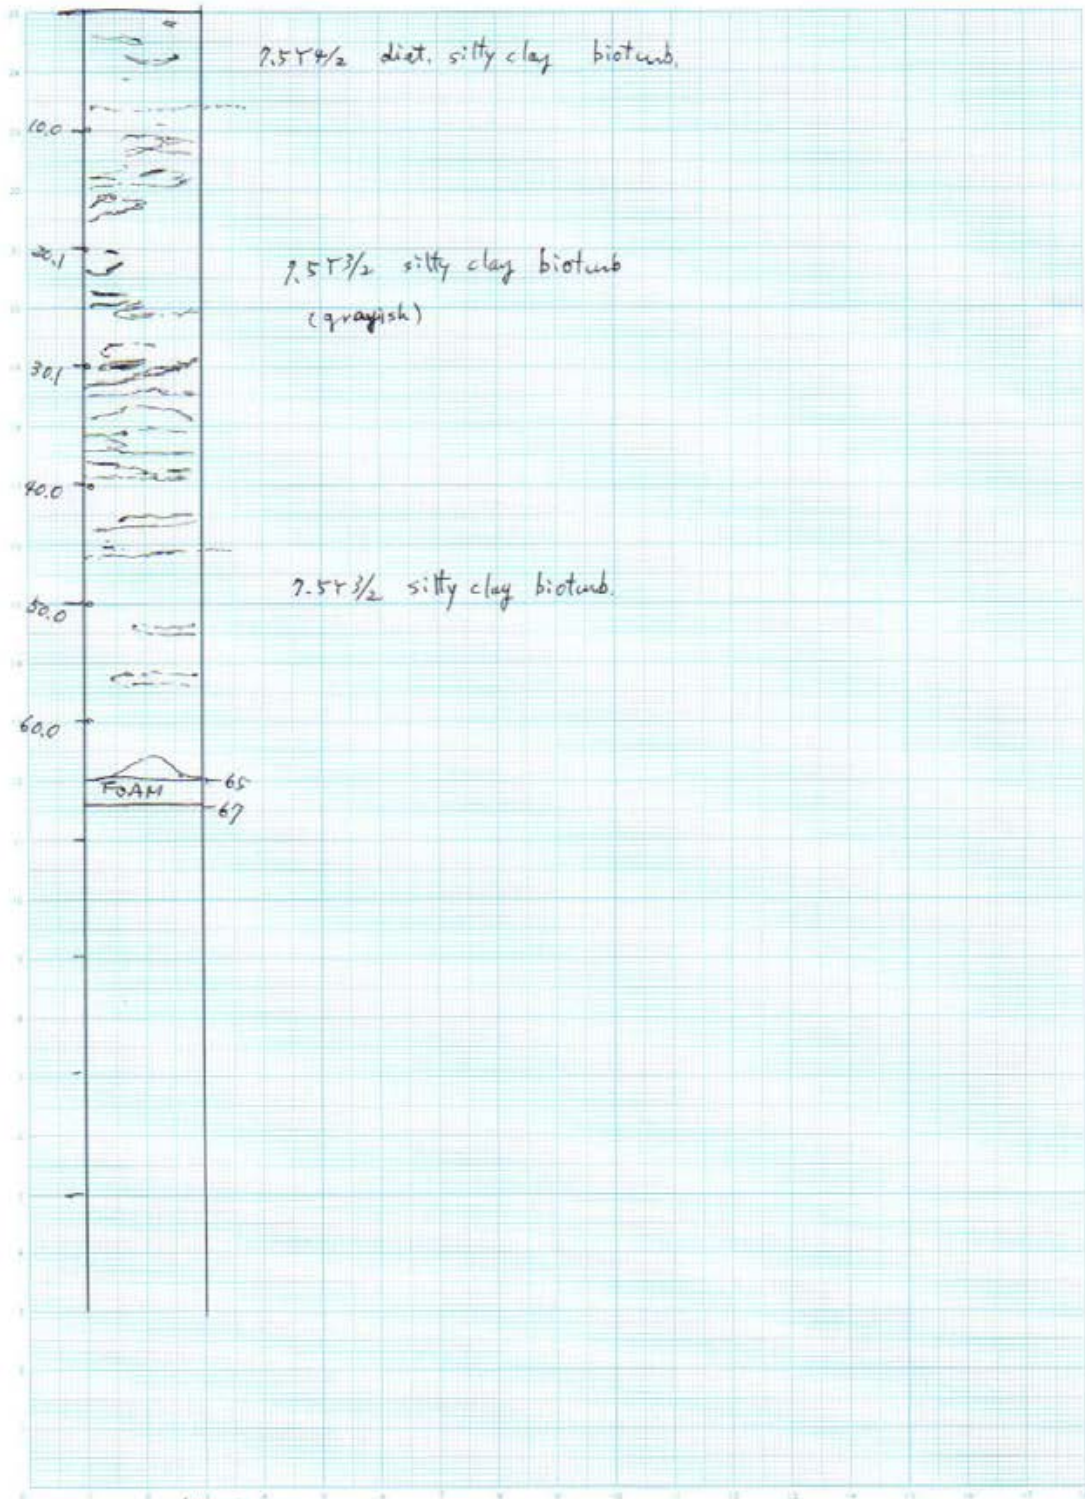 7.5Y4/2 diat. silty clay bioturb.
10.0
20.1
7.5Y3/2 silty clay bioturb
(grayish)
30.1
40.0
7.5Y3/2 silty clay bioturb.
50.0
60.0
65
FOAM
67